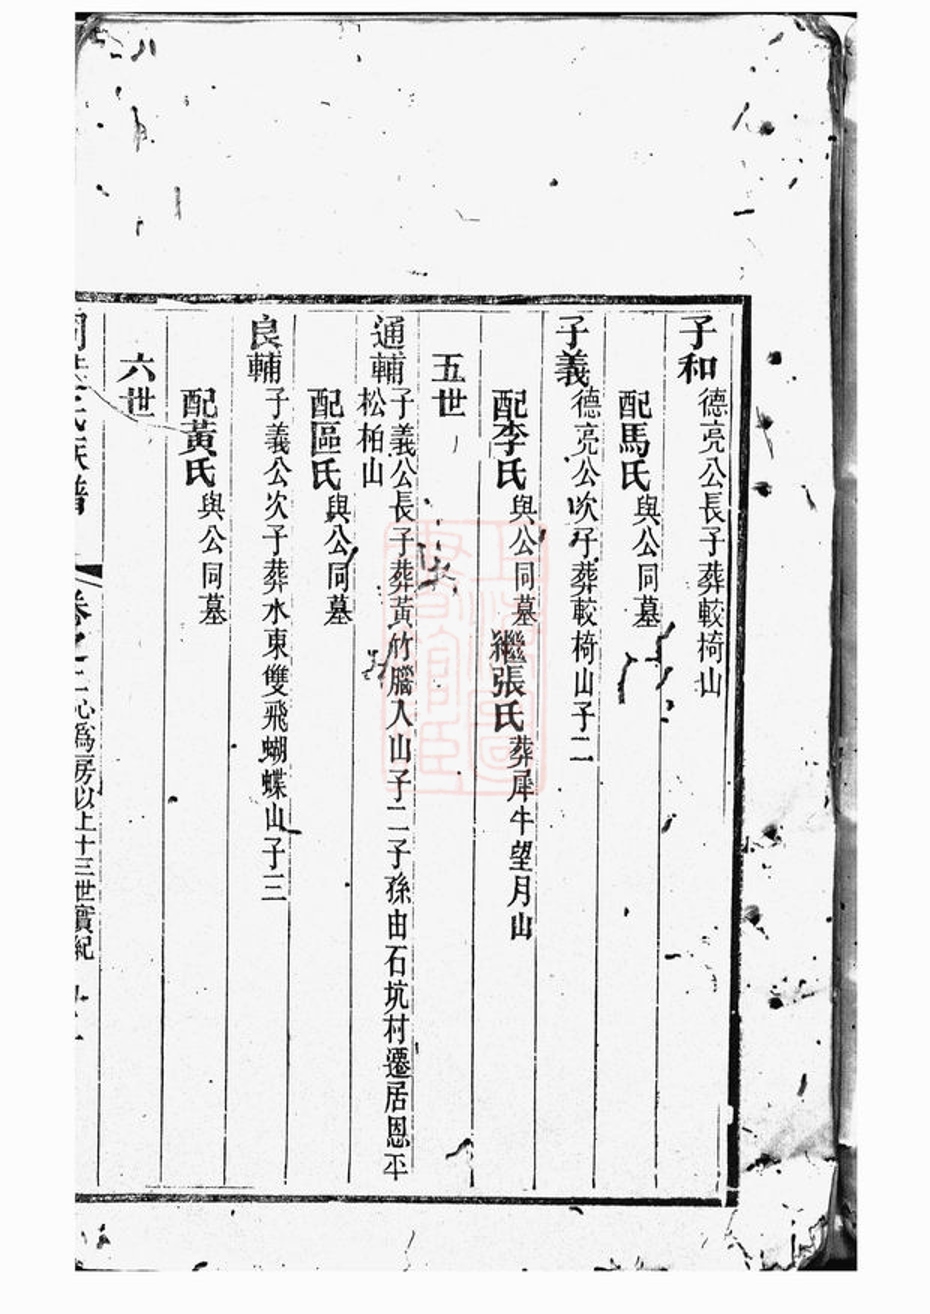 子和 德亮公長子葬較椅山
配馬氏 與公同墓
子義 德亮公次子葬較椅山子二
配李氏 與公同墓 繼張氏 葬犀牛望月山
五世
通輔 子義公長子葬黃竹腦入山子二子孫由石坑村遷居恩平
松柏山
配區氏 與公同墓
良輔 子義公次子葬水東雙飛蝴蝶山子三
配黃氏 與公同墓
六世
氏族譜 卷之二 心為房以上十三世實紀